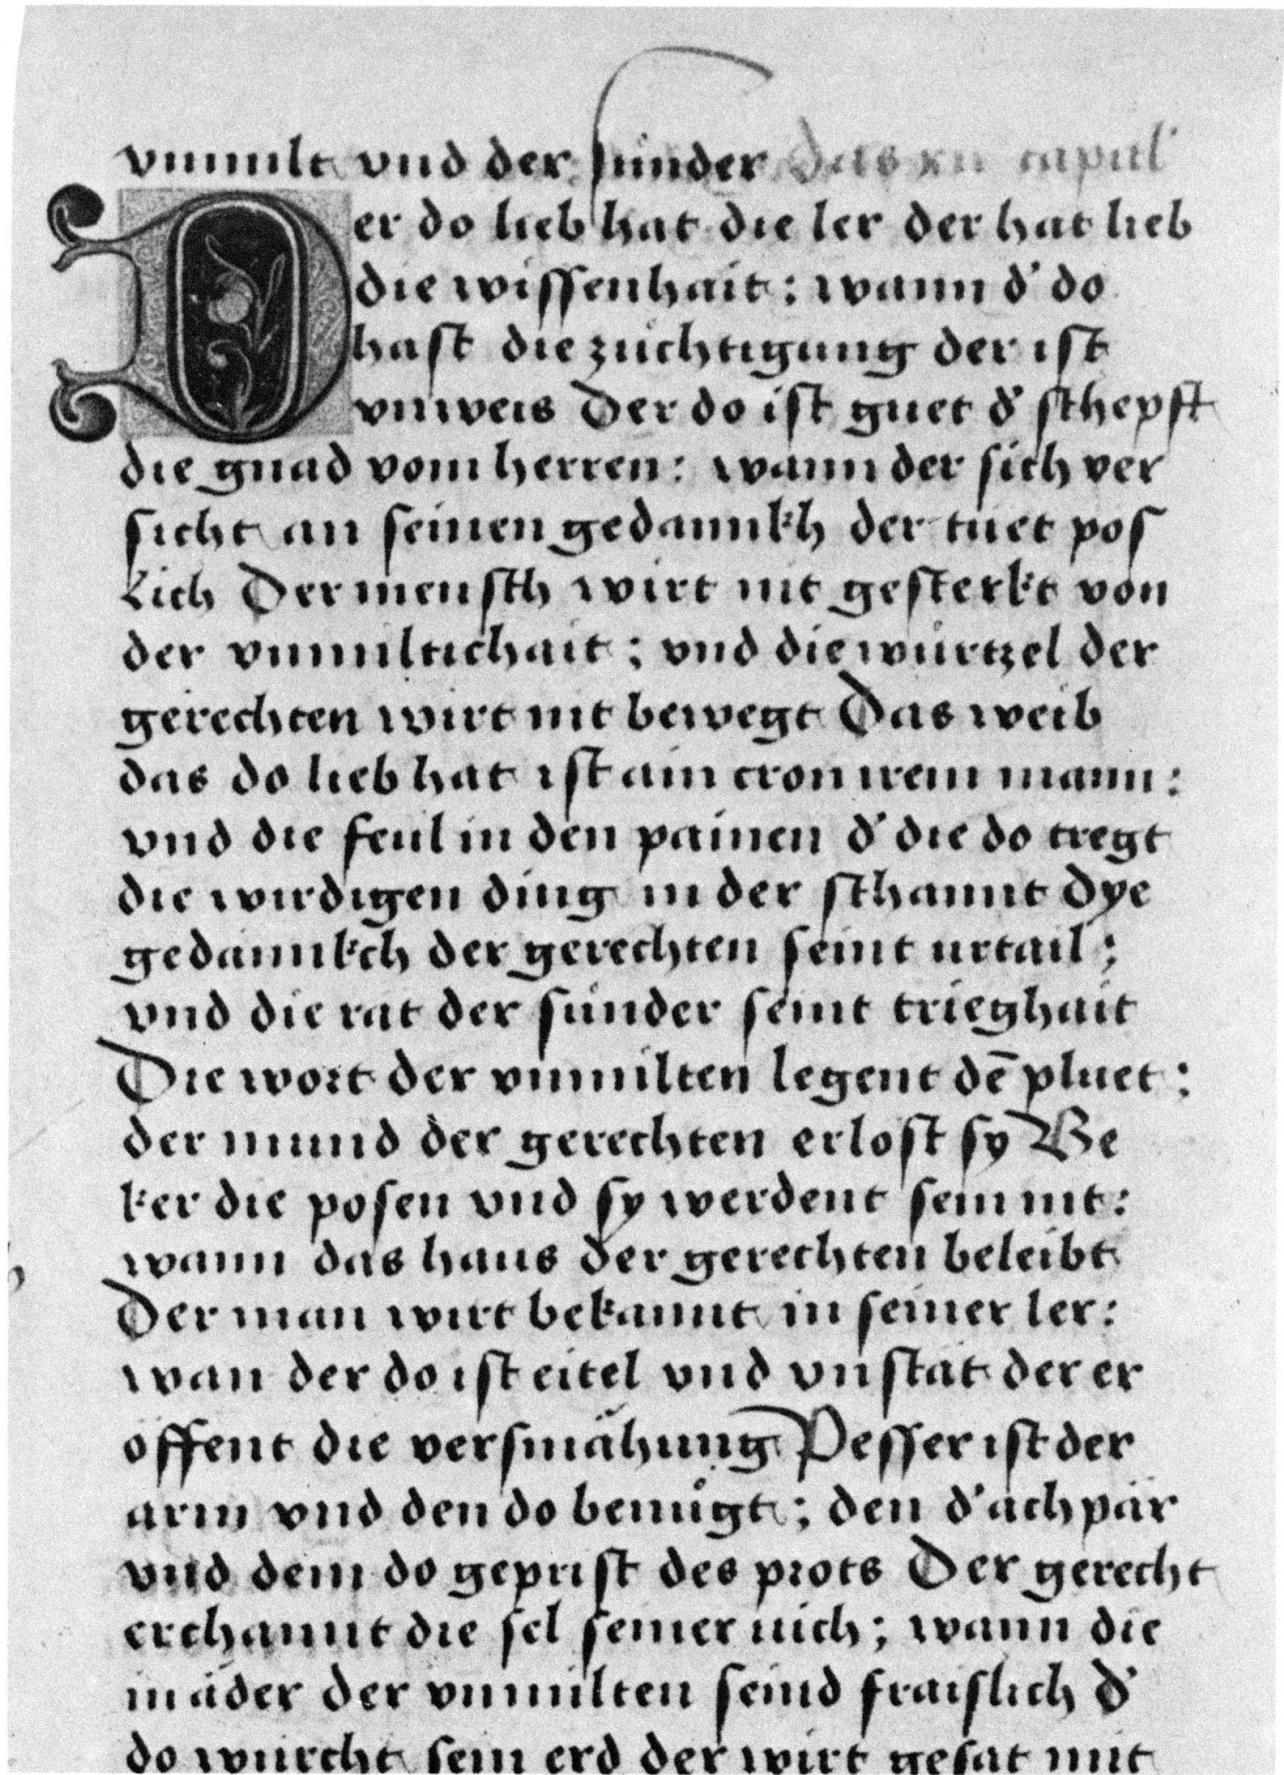 vnmilt vnd der sünder das xii capitl
Der do lieb hat die ler der hat lieb
die wissenhait: wann d' do
hast die züchtigung der ist
vnweis Der do ist guet d' schepft
die gnad vom herren: wann der sich ver
sicht an seinen gedannkh der tuet pos
Lich Der mensch wirt nit gesterkt von
der vnmiltichait; vnd die würtzel der
gerechten wirt nit bewegt Das weib
das do lieb hat ist ain cron irem mann:
vnd die feul in den painen d' die do tregt
die wirdigen ding in der schannt Dye
gedännkch der gerechten seint urtail;
vnd die rät der sünder seint trieghait
Die wort der vnmilten legent dē pluet:
der mund der gerechten erlost sy Be
ker die posen vnd sy werdent sein nit:
wann das haus der gerechten beleibt
Der man wirt bekannt in seiner ler:
wan der do ist eitel vnd vnstät der er
öffent die versmähung Pesser ist der
arm vnd den do benügt; den d' achpär
vnd dem do geprist des prots Der gerecht
erchannt die sel seiner vich; wann die
inäder der vnmilten seind fraislich d'
do würcht sein erd der wirt gesat mit